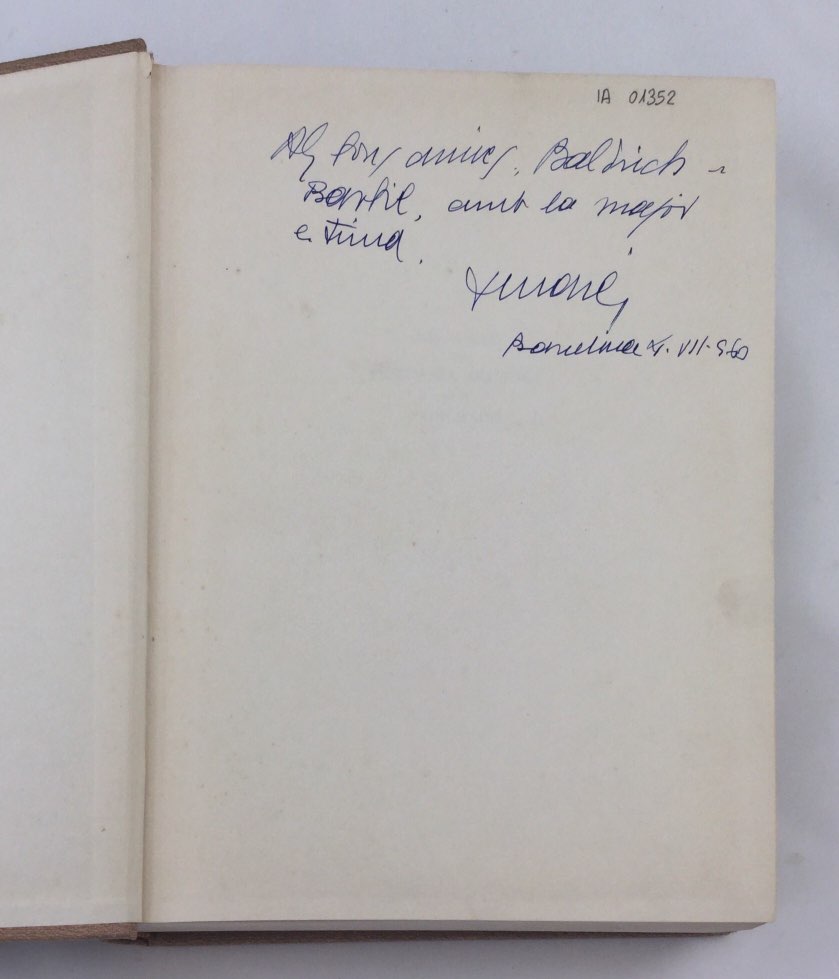 IA 01352
Als bons amics, Baldrich -
Bartil, amb la major
estima.
Barcelona VII-960